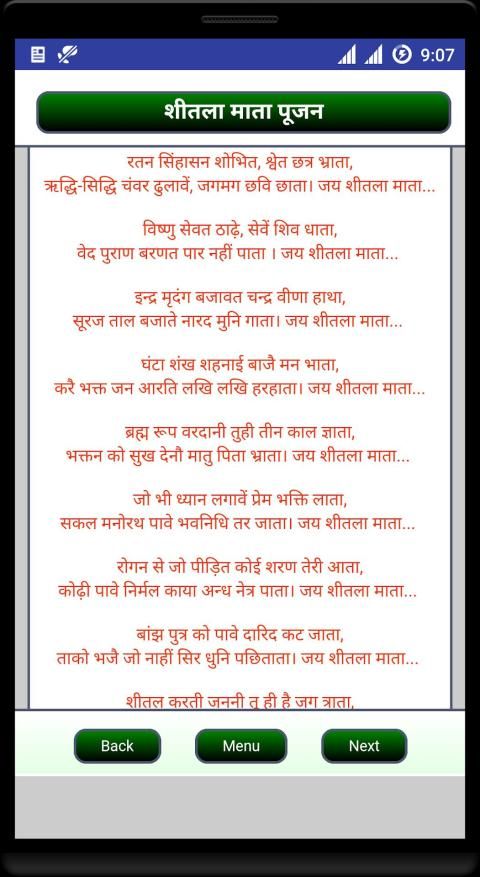 9:07
शीतला माता पूजन
रतन सिंहासन शोभित, श्वेत छत्र भ्राता,
ऋद्धि-सिद्धि चंवर ढुलावें, जगमग छवि छाता। जय शीतला माता...
विष्णु सेवत ठाढ़े, सेवें शिव धाता,
वेद पुराण बरणत पार नहीं पाता । जय शीतला माता...
इन्द्र मृदंग बजावत चन्द्र वीणा हाथा,
सूरज ताल बजाते नारद मुनि गाता। जय शीतला माता...
घंटा शंख शहनाई बाजै मन भाता,
करै भक्त जन आरति लखि लखि हरहाता। जय शीतला माता...
ब्रह्म रूप वरदानी तुही तीन काल ज्ञाता,
भक्तन को सुख देनौ मातु पिता भ्राता। जय शीतला माता...
जो भी ध्यान लगावें प्रेम भक्ति लाता,
सकल मनोरथ पावे भवनिधि तर जाता। जय शीतला माता...
रोगन से जो पीड़ित कोई शरण तेरी आता,
कोढ़ी पावे निर्मल काया अन्ध नेत्र पाता। जय शीतला माता...
बांझ पुत्र को पावे दारिद कट जाता,
ताको भजै जो नाहीं सिर धुनि पछिताता। जय शीतला माता...
शीतल करती जननी तू ही है जग त्राता,
Back
Menu
Next